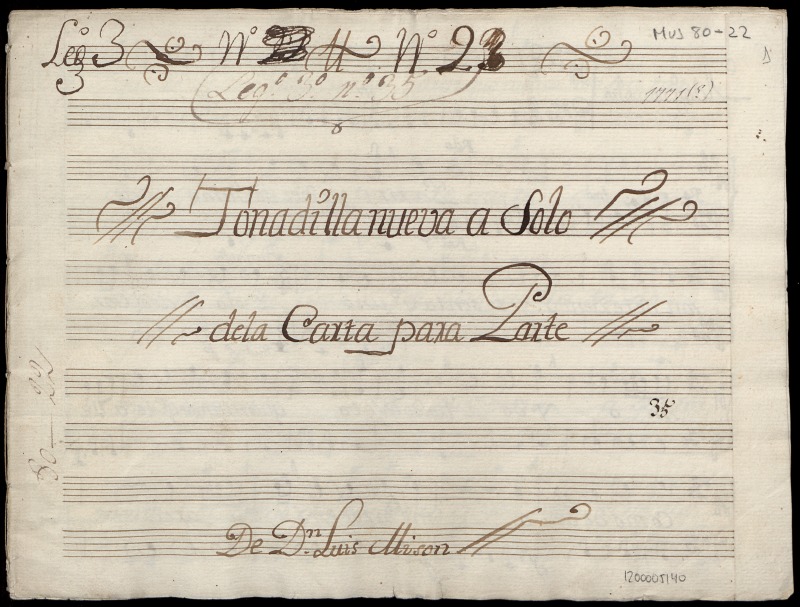 Mus 80-22
Lego 3 No No 23
3
Lego 3o no 35
1771(?)
Tonadilla nueva a Solo
dela Carta para Parte
35
80-22
De Dn Luis Mison
1200005140